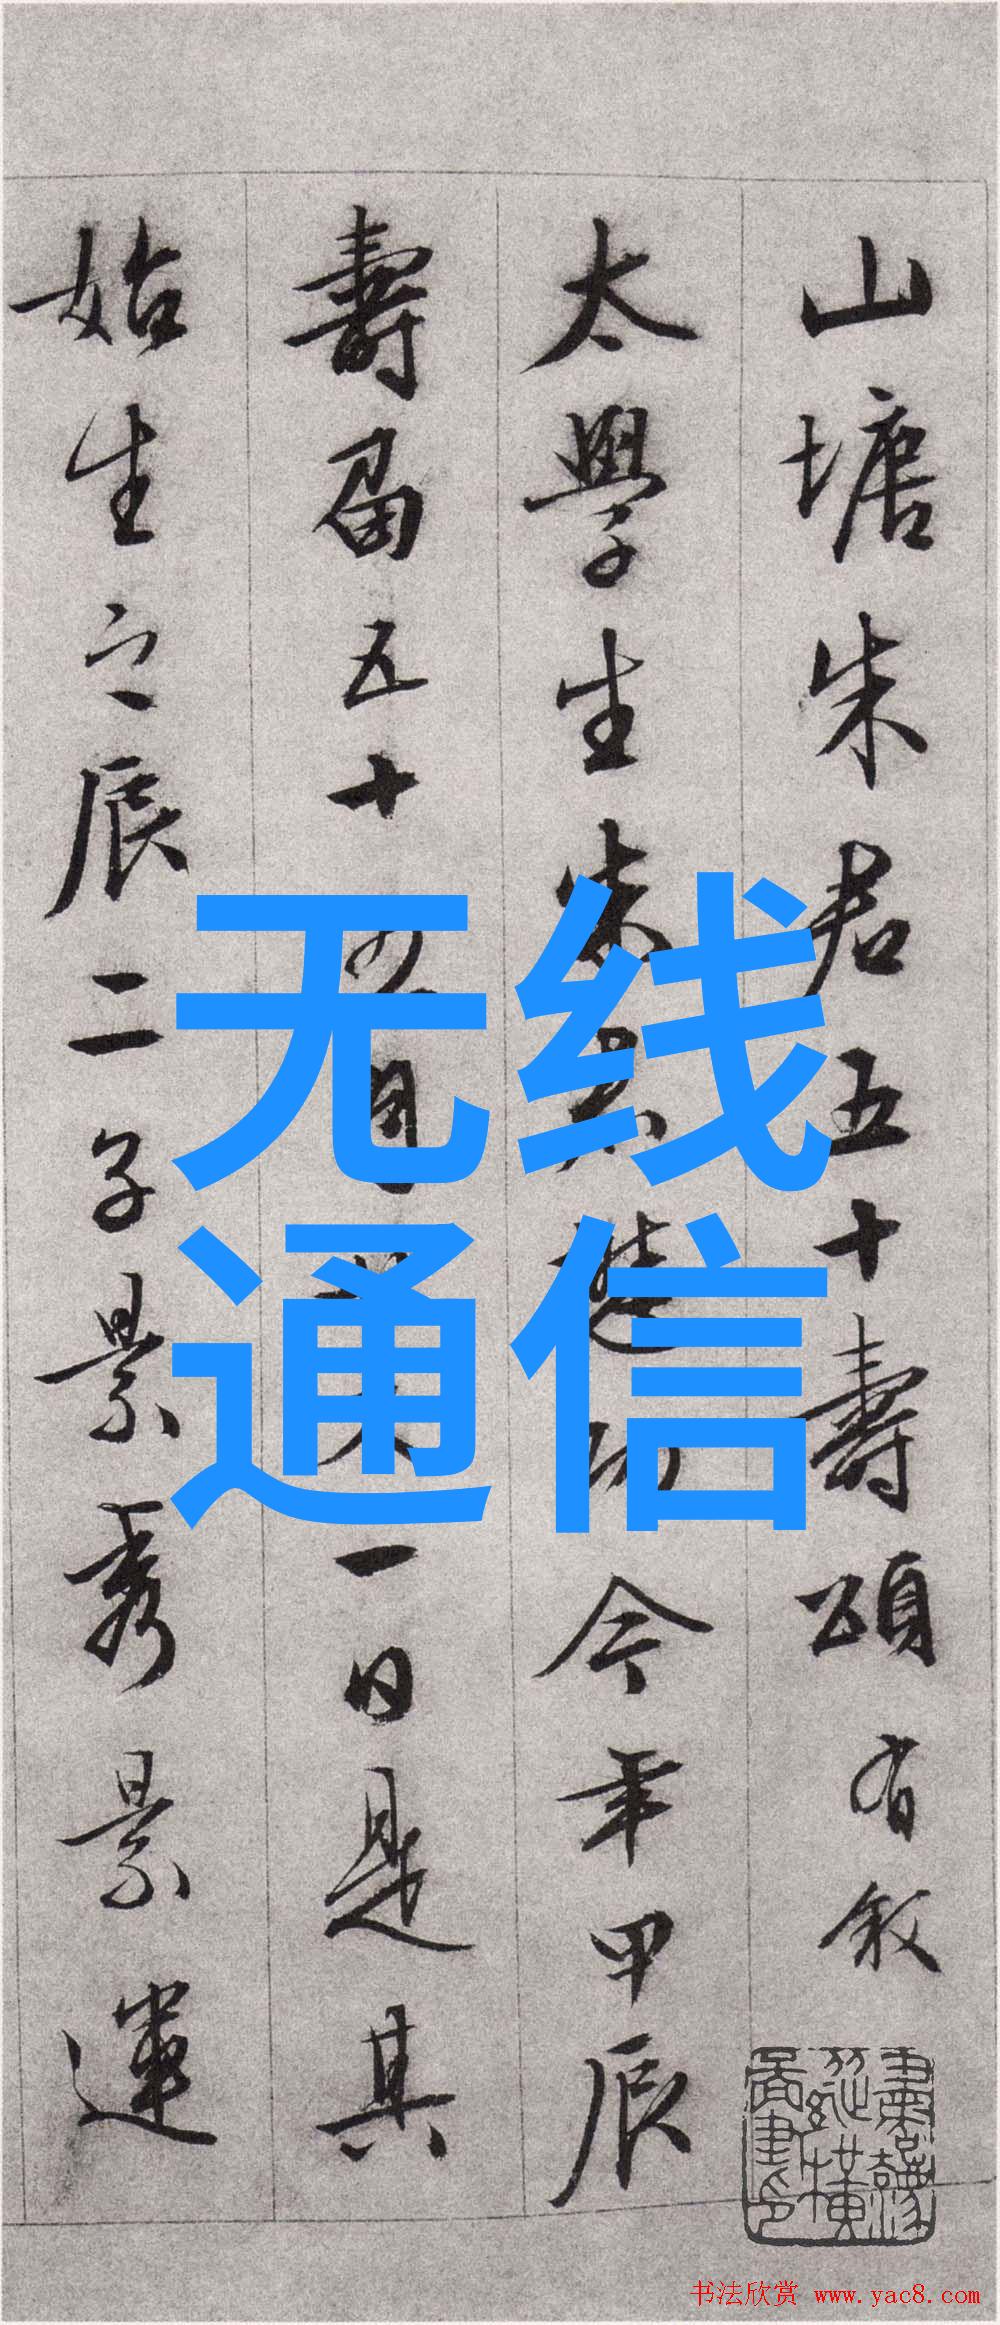 山塘朱君五十壽頌有敘
太學生朱 今年甲辰
壽届五十 月 一日是其
始生之辰二子景秀景運
无线
通信
书法欣赏 www.yac8.com